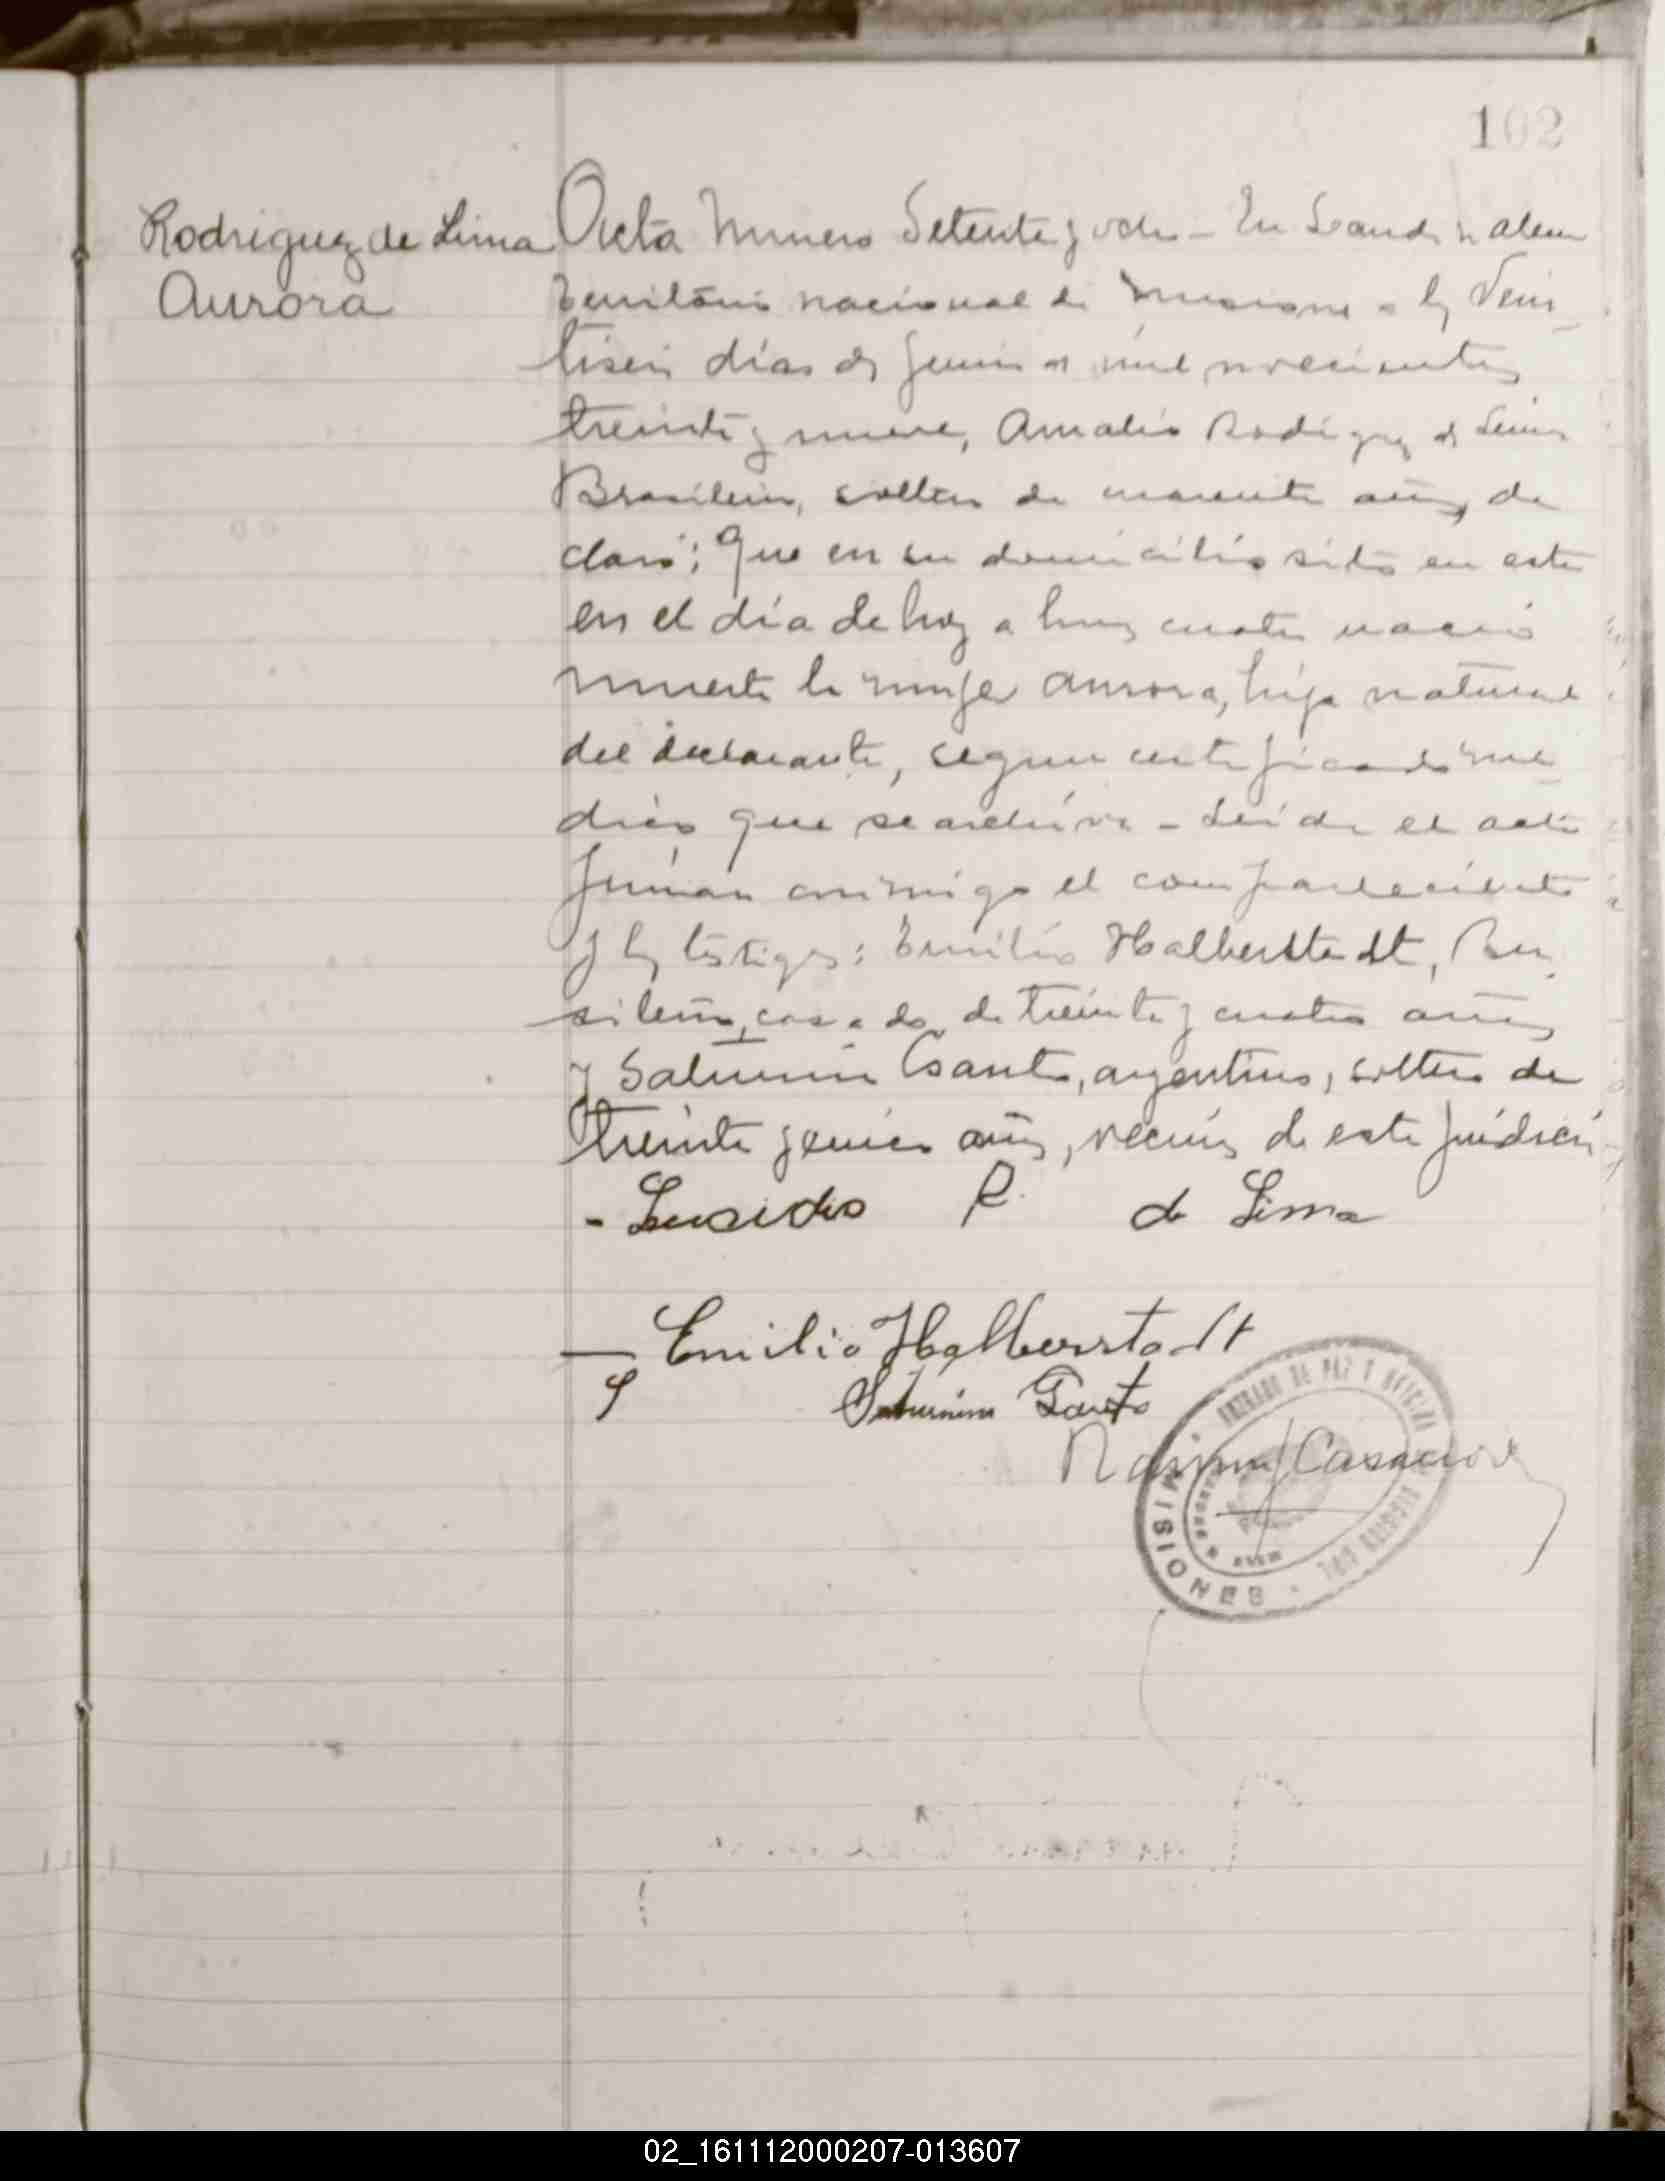 102
Rodriguez de Lima
Aurora
Acta Numero Setenta y ocho - En Leandro N Alem
territorio nacional de Misiones a los Vein
tiseis dias de Junio de mil novecientos
treinta y nueve, Amalio Rodriguez de Lima
Brasilero, soltero de cuarenta años, de
claró; Que en su domicilio sito en este
en el día de hoy a horas cuatro nació
muerta la mujer Aurora, hija natural
del declarante, segun certificado me
dico que se archiva - Leida el acta
firman conmigo el compareciente
y los testigos: Emilio Halberstadt, Bra
sileño, casado, de treinta y cuatro años
y Saturnino Gauto, argentino, soltero de
treinta y cinco años, vecinos de esta jurisdicción
- R. de Lima
Emilio Halberstadt
Saturnino Gauto
JUZGADO DE PAZ Y OFICINA
MISIONES
02_161112000207-013607